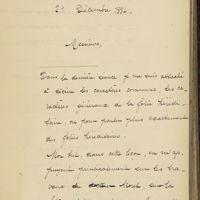 21 Décembre 1886.
Messieurs,
Dans la dernière leçon je me suis attaché
à décrire les caractères communs, les ca-
ractères généraux de la folie hérédi-
taire, ou pour parler plus exactement
des folies héréditaires.
Mon but, dans cette leçon, en m'ap-
puyant principalement sur les tra-
vaux du docteur Morel, sur la